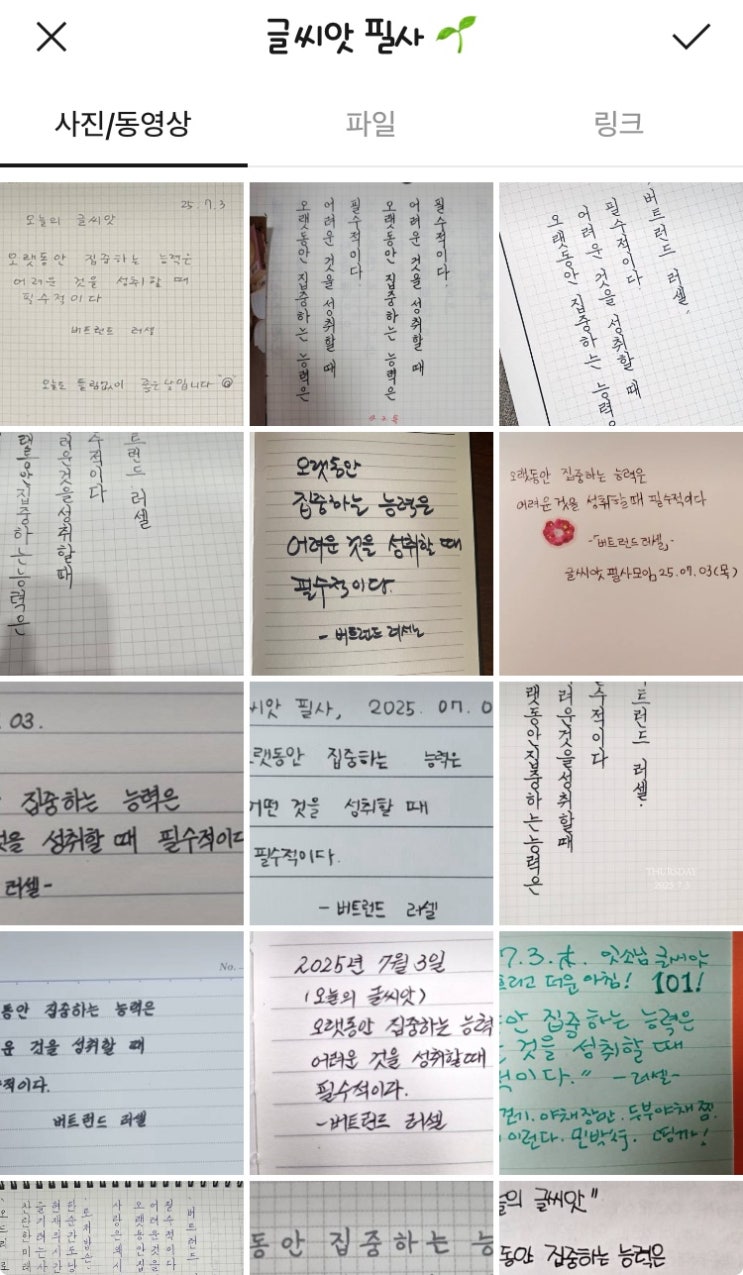 글씨앗 필사
사진/동영상
파일
링크
25. 7. 3
오늘의 글씨앗
오랫동안 집중하는 능력은
어려운 것을 성취할 때
필수적이다
버트런드 러셀
오늘도 틀림없이 좋은 날입니다
오랫동안 집중하는 능력은
어려운 것을 성취할 때
필수적이다.
오랫동안 집중하는 능력은
어려운 것을 성취할 때
필수적이다.
오랫동안 집중하는 능력은
어려운 것을 성취할 때
필수적이다.
버트런드 러셀.
랫동안 집중하는 능력은
려운 것을 성취할 때
수적이다
트런드 러셀
오랫동안
집중하는 능력은
어려운 것을 성취할 때
필수적이다.
- 버트런드 러셀
오랫동안 집중하는 능력은
어려운 것을 성취할 때 필수적이다
-「버트런드러셀」-
글씨앗 필사모임 25.07.03(목)
03.
집중하는 능력은
것을 성취할 때 필수적이다
러셀-
씨앗 필사, 2025. 07. 0
오랫동안 집중하는 능력은
어떤 것을 성취할 때
필수적이다.
- 버트런드 러셀
랫동안 집중하는 능력은
려운 것을 성취할 때
수적이다
트런드 러셀.
THURSDAY
2025.7.3
No.
동안 집중하는 능력은
운 것을 성취할 때
적이다.
버트런드 러셀
2025년 7월 3일
(오늘의 글씨앗)
오랫동안 집중하는 능력
어려운 것을 성취할때
필수적이다.
-버트런드 러셀
7.3.木. 잇소님 글씨앗
흐리고 더운 아침! 101!
안 집중하는 능력은
것을 성취할 때
적이다." -러셀-
걷기. 야채장만. 두부야채찜.
이런다.
버트런드
필수적이다
어려운 것을
오랫동안 집
사랑은 역시
동안 집중하는 능
늘의 글씨앗"
동안 집중하는 능력은